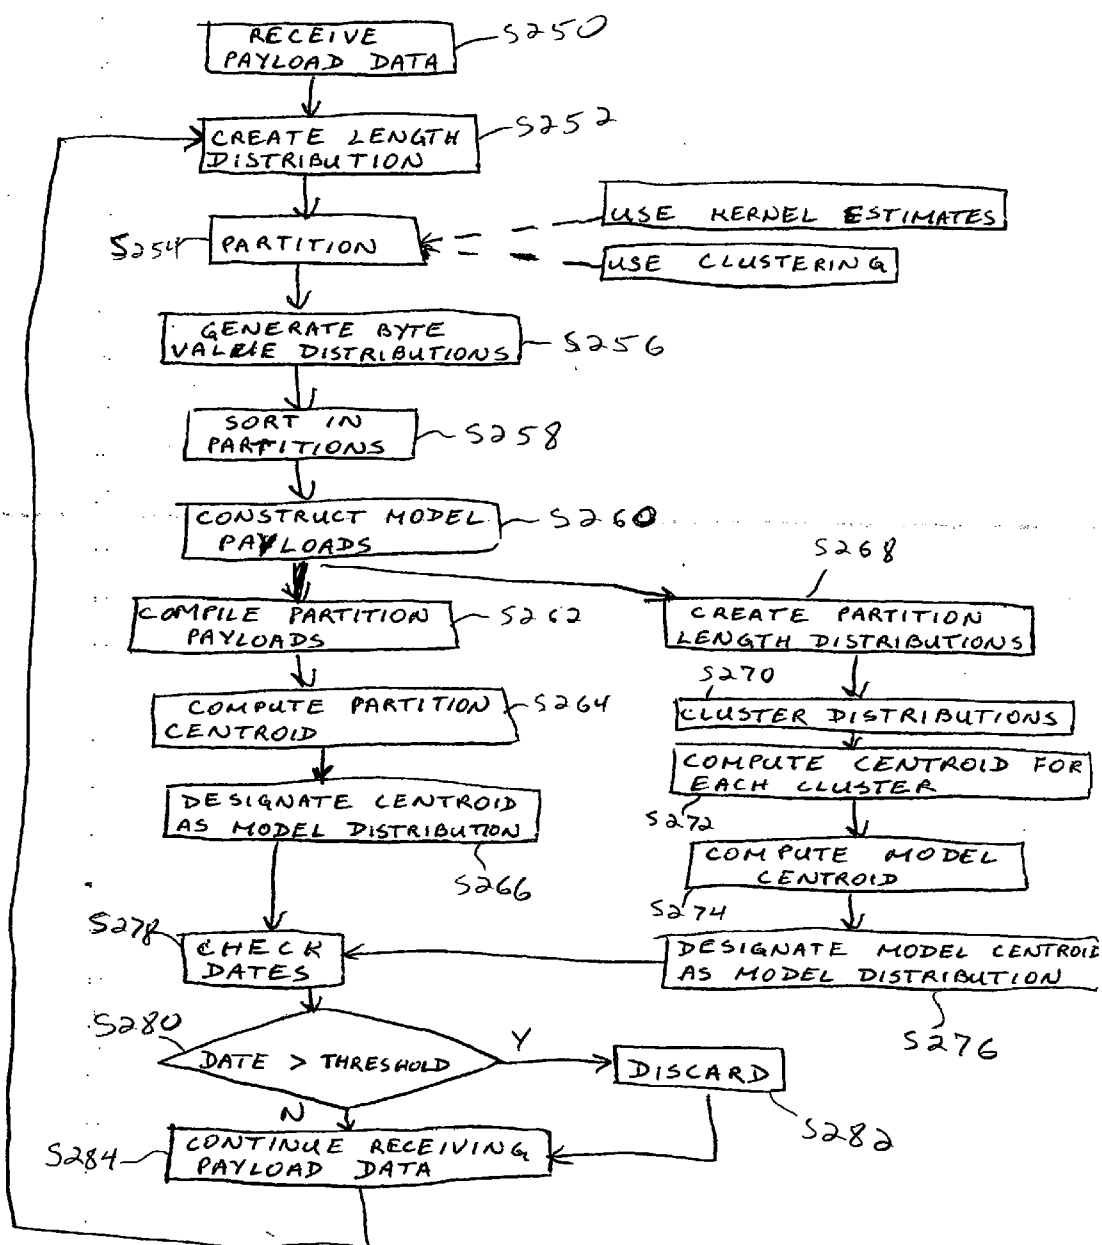 RECEIVE
PAYLOAD DATA
S250
CREATE LENGTH
DISTRIBUTION
S252
PARTITION
S254
USE KERNEL ESTIMATES
USE CLUSTERING
GENERATE BYTE
VALUE DISTRIBUTIONS
S256
SORT IN
PARTITIONS
S258
CONSTRUCT MODEL
PAYLOADS
S260
COMPILE PARTITION
PAYLOADS
S262
COMPUTE PARTITION
CENTROID
S264
DESIGNATE CENTROID
AS MODEL DISTRIBUTION
S266
S268
CREATE PARTITION
LENGTH DISTRIBUTIONS
S270
CLUSTER DISTRIBUTIONS
COMPUTE CENTROID FOR
EACH CLUSTER
S272
COMPUTE MODEL
CENTROID
S274
DESIGNATE MODEL CENTROID
AS MODEL DISTRIBUTION
S276
S278
CHECK
DATES
S280
DATE > THRESHOLD
Y
N
DISCARD
S282
S284
CONTINUE RECEIVING
PAYLOAD DATA